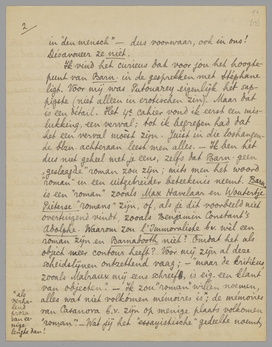 2
in den mensch" — dus voorwaar, ook in ons!
Desavoueer ze niet.
Ik vind het curieus dat voor jou het hoogte-
punt van Barn. in de gesprekken met Stéphane
ligt. Voor mij was Putouarey eigenlijk het sap-
pigste (niet alleen in erotischen zin). Maar dat
is een détail. Het 4e cahier vond ik eerst een mis-
lukking, een verval; tot ik begrepen had dat
het een verval moest zijn. Juist in die boshangen-
de stem achteraan leest men alles. — Ik ben het
dus niet geheel met je eens, zelfs dat Barn. geen
"geslaagde" roman zou zijn; mits men het woord
"roman" in een uitgebreider beteekenis neemt. Barn.
is een "roman", zooals Max Havelaar en Woutertje
Pieterse "romans" zijn, of, als je dit voorbeeld niet
overtuigend vindt, zooals Benjamin Constant's
Adolphe. Waarom zou L'Immoraliste bv. wèl een
roman zijn en Barnabooth niet? Omdat het als
object meer contour heeft? Voor mij zijn al deze
scheidslijnen ontzettend vaag; — maar de kritikus
zooals Malraux mij eens schreef, is eig. een klant
van objecten." — Ik zou "roman" willen noemen,
alles wat niet volkomen memoires is; de memoires
van Casanova b.v. zijn op menige plaats volkomen
"roman". — Wat bij het "essayistische" gedeelte noemt,